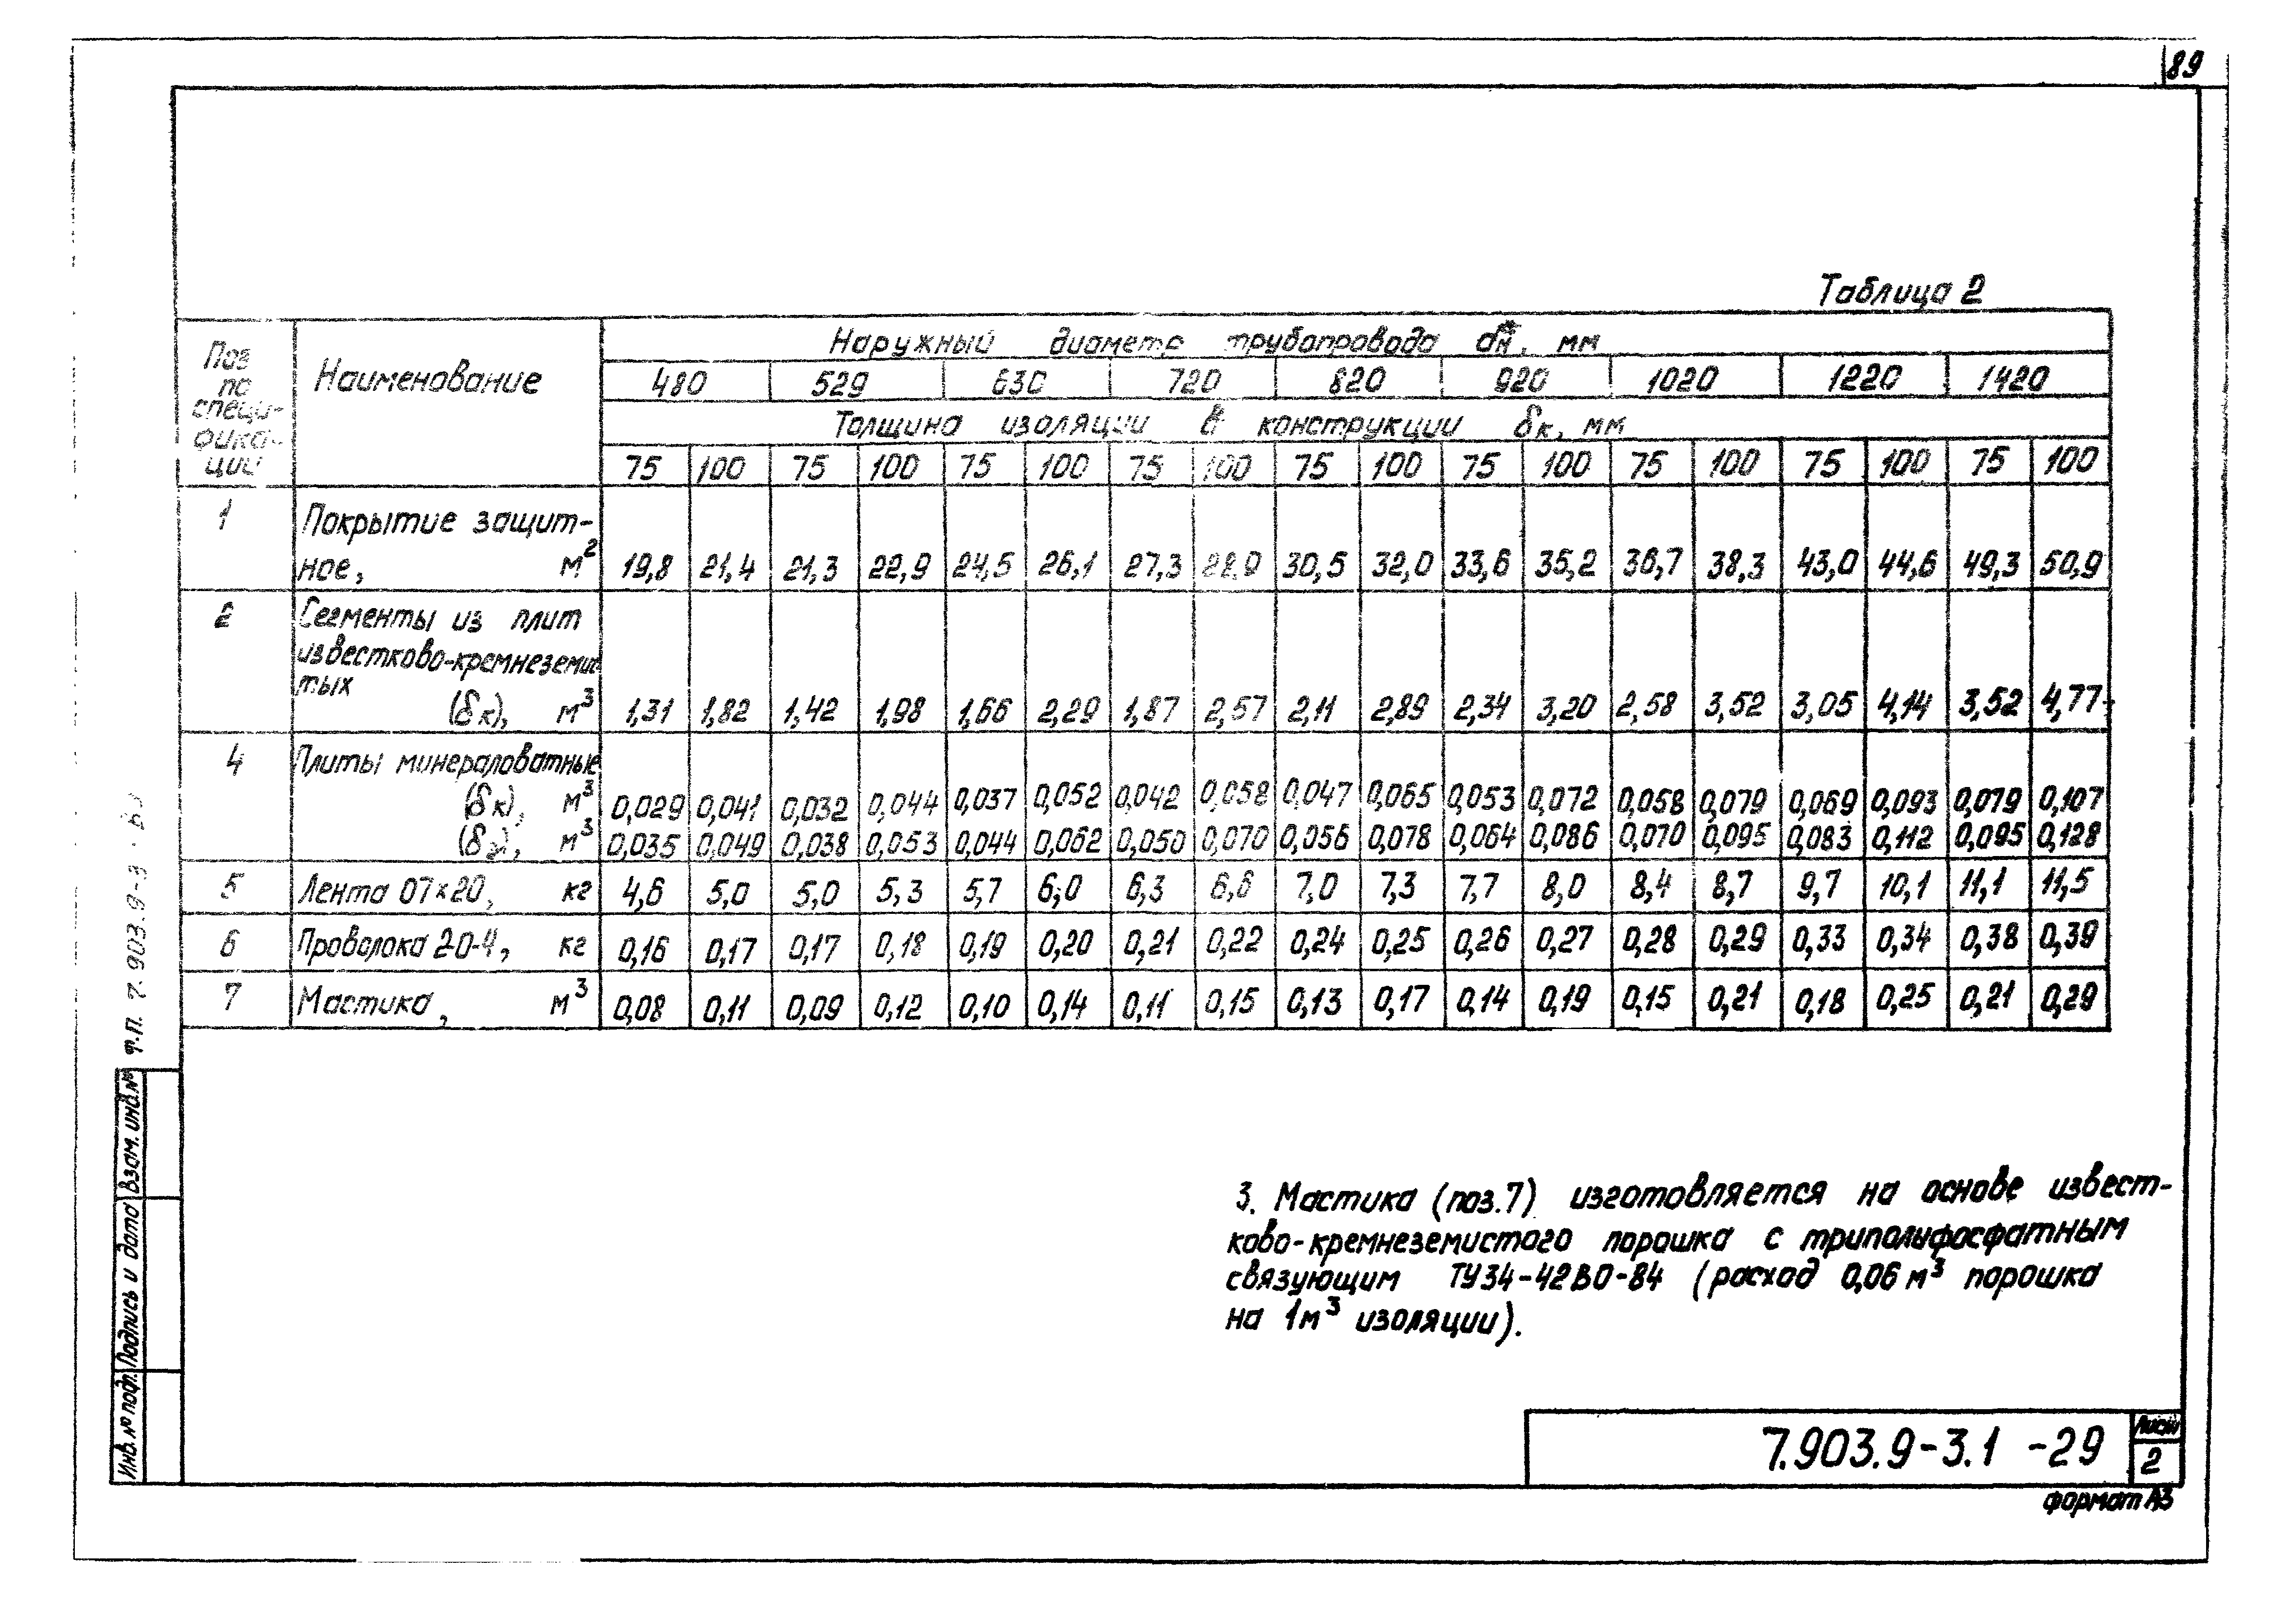 89
Таблица 2
Поз по специ-фика-ции
Наименование
Наружный диаметр трубопровода dн*, мм
480 529 630 720 820 920 1020 1220 1420
Толщина изоляции в конструкции δк, мм
75 100 75 100 75 100 75 100 75 100 75 100 75 100 75 100 75 100
1 Покрытие защит-
ное, м² 19,8 21,4 21,3 22,9 24,5 26,1 27,3 28,9 30,5 32,0 33,6 35,2 36,7 38,3 43,0 44,6 49,3 50,9
2 Сегменты из плит
известково-кремнеземис
тых
(δк), м³ 1,31 1,82 1,42 1,98 1,66 2,29 1,87 2,57 2,11 2,89 2,34 3,20 2,58 3,52 3,05 4,14 3,52 4,77
4 Плиты минераловатные
(δк), м³ 0,029 0,041 0,032 0,044 0,037 0,052 0,042 0,058 0,047 0,065 0,053 0,072 0,058 0,079 0,069 0,093 0,079 0,107
м³ 0,035 0,049 0,038 0,053 0,044 0,062 0,050 0,070 0,056 0,078 0,064 0,086 0,070 0,095 0,083 0,112 0,095 0,128
5 Лента 07×20, кг 4,6 5,0 5,0 5,3 5,7 6,0 6,3 6,6 7,0 7,3 7,7 8,0 8,4 8,7 9,7 10,1 11,1 11,5
6 Проволока 20-Ч, кг 0,16 0,17 0,17 0,18 0,19 0,20 0,21 0,22 0,24 0,25 0,26 0,27 0,28 0,29 0,33 0,34 0,38 0,39
7 Мастика, м³ 0,08 0,11 0,09 0,12 0,10 0,14 0,11 0,15 0,13 0,17 0,14 0,19 0,15 0,21 0,18 0,25 0,21 0,29
3. Мастика (поз.7) изготовляется на основе извест-
ково-кремнеземистого порошка с триполифосфатным
связующим ТУ34-42В0-84 (расход 0,06 м³ порошка
на 1м³ изоляции).
ф.п. 7.903.9-3
Взам. инв.№
Подпись и дата
Инв. № подп.
7.903.9-3.1 -29
Лист
2
формат А3